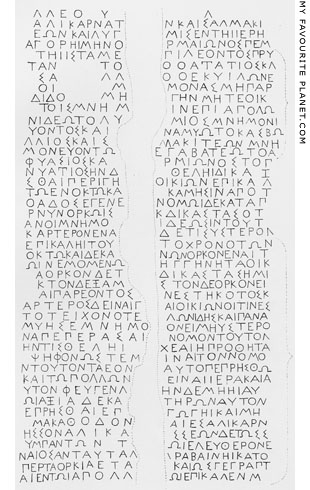 ΑΛΙΚΑΡΝΑΤ
ΕΩΝΚΑΙΛΥΓ
ΑΓΟΡΗΙΜΗΝΟ
ΤΗΙΙΣΤΑΜΕ
ΤΑΝ ΤΟ
ΣΑ
ΟΙ
ΔΙΔΟ ΜΗ
ΤΟΙΣΜΝΗΜ
ΝΙΔΕΩΤΟΛΥ
ΥΟΝΤΟΣΚΑΙ
ΛΛΙΟΣΚΑΙΣ
ΜΟΝΕΥΟΝΤΩ
ΦΥΑΣΙΟΣΚΑ
ΝΥΑΤΙΟΣΗΝΔ
ΣΘΑΙΠΕΡΙΓΗ
ΤΩΕΝΟΚΤΩΚΑ
ΟΑΔΟΣΕΓΕΝΕ
ΡΝΥΝΟΡΚΩΙΣ
ΑΝΟΙΜΝΗΜΟ
ΚΑΡΤΕΡΟΝΕΝΑ
ΕΠΙΚΑΛΗΙΤΟΥ
ΟΚΤΩΚΑΙΔΕΚΑ
ΩΙΝΕΜΟΜΕΝΩ
ΑΟΡΚΟΝΔΕΤ
ΚΤΟΝΔΕΞΑΜ
ΑΙΠΑΡΕΟΝΤΟΣ
ΑΡΤΕΡΟΣΔΕΙΝΑΙΓ
ΤΟΤΕΙΧΟΝΟΤΕ
ΜΥΗΣΕΜΝΗΜΟ
ΝΑΠΕΠΕΡΑΣΑΙ
ΗΝΤΙΣΘΕΛΗΙ
ΨΗΦΟΝΩΣΤΕΜ
ΝΤΟΥΤΟΝΤΑΕΟΝ
ΚΑΙΤΩΠΟΛΛΩΝ
ΥΤΟΝΦΕΥΓΕΝ
ΩΙΑΞΙΑΔΕΚΑ
ΕΠΡΗΣΘΑΙΕΠ
ΜΑΚΑΘΟΔΟΝ
ΗΣΣΟΝΑΛΙΚΑ
ΥΜΠΑΝΤΩΝ Τ
ΝΑΙΟΣΑΝΤΑΥΤΑΛ
ΠΕΡΤΑΟΡΚΙΑΕΤΑ
ΑΙΕΝΤΩΙΑΠΟΛΛ
ΝΚΑΙΣΑΛΜΑΚΙ
ΜΙΣΕΝΤΗΙΙΕΡΗΙ
ΡΜΑΙΩΝΟΣΠΕΜ
ΠΙΛΕΟΝΤΟΣΠΡΥ
ΟΟΑΤΑΤΙΟΣΚΑ
ΟΟΕΚΥΙΛΩΝΕ
ΜΟΝΑΣΜΗΠΑΡ
ΓΗΝΜΗΤΕΟΙΚ
ΙΝΕΠΙΑΠΟΛΩ
ΜΙΟΣΜΝΗΜΟΝΙ
ΝΑΜΥΩΤΟΚΑΣΒΩ
ΜΑΚΙΤΕΩΝΜΝΗ
ΕΓΑΒΑΤΕΩΤΟΑ
ΡΜΙΩΝΟΣΤΟΠ
ΘΕΛΗΙΔΙΚΑΙ
ΟΙΚΙΩΝΕΠΙΚΑΛ
ΚΑΜΗΣΙΝΑΠΟΤ
ΝΟΜΩΙΔΕΚΑΤΑΠ
ΚΔΙΚΑΣΤΑΣΟΤ
ΙΔΕΩΣΙΝΤΟΥΤ
ΔΕΤΙΣΥΣΤΕΡΟΝ
ΤΟΧΡΟΝΟΤΩΝ
ΝΩΝΟΡΚΟΝΕΝΑΙΤ
ΗΓΓΗΝΗΤΑΟΙΚ
ΔΙΚΑΣΤΑΣΗΜΙ
ΣΤΟΝΔΕΟΡΚΟΝΕΙ
ΝΕΣΤΗΚΟΤΟΣΚ
ΑΙΟΙΚΙΩΝΟΙΤΙΝΕΣ
ΛΩΝΙΔΗΣΚΑΙΠΑΝΑ
ΟΝΕΙΜΗΥΣΤΕΡΟ
ΝΟΜΟΝΤΟΥΤΟΝ
ΧΕΑΙΗΠΡΟΘΗΤΑ
ΙΝΑΙΤΟΝΝΟΜΟ
ΑΥΤΟΠΕΠΡΗΣΘΩ
ΕΙΝΑΙΙΕΡΑΚΑΙΑ
ΗΝΔΕΜΗΗΙΑΥ
ΤΗΡΩΝΑΥΤΟΝ
ΓΩΓΗΙΚΑΙΜΗ
ΑΙΕΣΑΛΙΚΑΡΝ
ΣΣΕΩΝΔΕΤΩΣΣ
ΩΙΕΛΕΥΘΕΡΟΝΕ
ΡΑΒΑΙΝΗΙΚΑΤΟ
ΚΑΙΩΣΓΕΓΡΑΠΤ
ΩΝΙΕΠΙΚΑΛΕΝ
MY FAVOURITE PLANET.COM